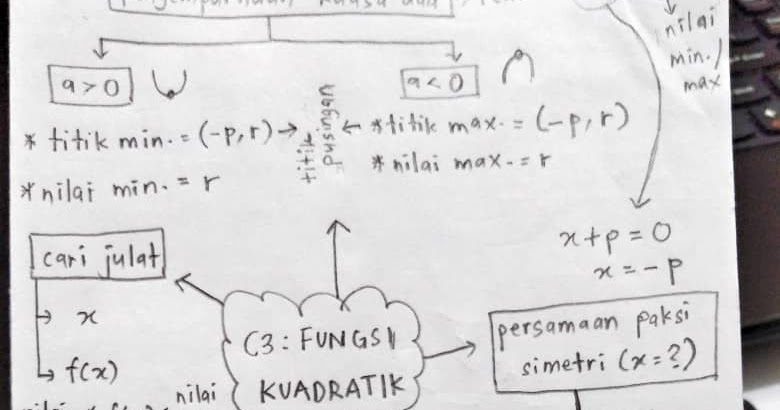 kuasa dua
nilai
min./
max
a > 0
a < 0
* titik min. = (-p, r) →
titik
pusingan
← * titik max. = (-p, r)
* nilai min. = r
* nilai max. = r
x + p = 0
x = -p
cari julat
→ x
→ f(x)
C3: FUNGSI
KUADRATIK
persamaan paksi
simetri (x = ?)
nilai